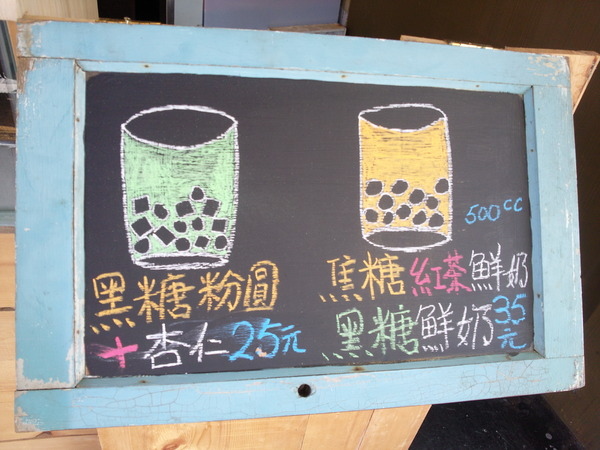 黑糖粉圓
+杏仁25元
500cc
焦糖紅茶鮮奶
黑糖鮮奶35元